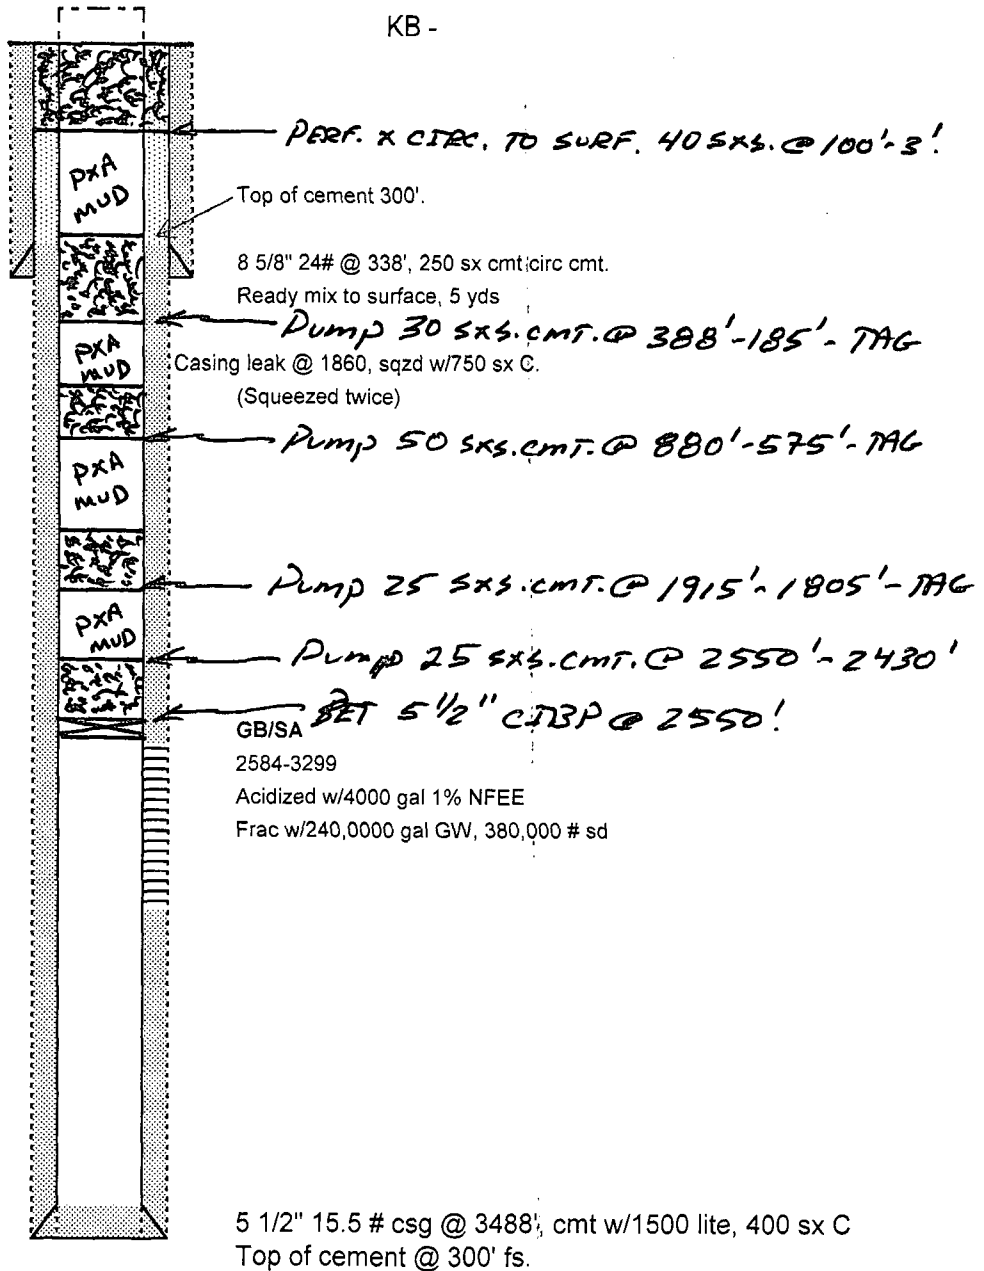 KB -
PERF. X CIRC. TO SURF. 40 SXS. @ 100'-3'.
PXA
MUD
Top of cement 300'.
8 5/8" 24# @ 338', 250 sx cmt circ cmt.
Ready mix to surface, 5 yds
Pump 30 SXS. CMT. @ 388'-185'- TAG
PXA
MUD
Casing leak @ 1860, sqzd w/750 sx C.
(Squeezed twice)
Pump 50 SXS. CMT. @ 880'-575'- TAG
PXA
MUD
Pump 25 SXS. CMT. @ 1915'-1805'- TAG
PXA
MUD
Pump 25 SXS. CMT. @ 2550'-2430'
SET 5 1/2" CIBP @ 2550'.
GB/SA
2584-3299
Acidized w/4000 gal 1% NFEE
Frac w/240,0000 gal GW, 380,000 # sd
5 1/2" 15.5 # csg @ 3488', cmt w/1500 lite, 400 sx C
Top of cement @ 300' fs.